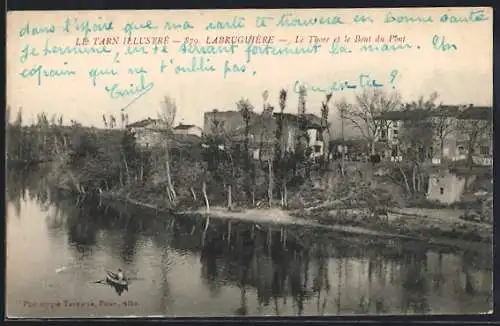 dans l'espoir que ma carte te trouvera en bonne santé
je termine, en te serrant fortement la main. Un
copain qui ne t'oublie pas,
LE TARN ILLUSTRÉ — 879. LABRUGUIÈRE — Le Thoré et le Bout du Pont
Phototypie Tarnaise, Poux, Albi